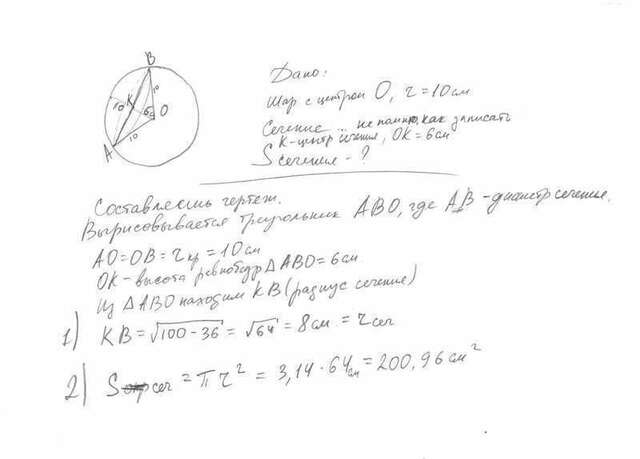 B
10
K
10
6
O
10
A
Дано:
Шар с центром O, r = 10 см
Сечение ... не помню, как записать
K-центр сечения, OK = 6 см
S сечения - ?
Составляешь чертеж.
Вырисовывается треугольник ABO, где AB - диаметр сечения.
AO = OB = r кр = 10 см
OK - высота равнобедр Δ ABO = 6 см
Из Δ ABO находим KB (радиус сечения)
1) KB = √100 - 36 = √64 = 8 см = r сеч
2) S сеч = πr² = 3,14 · 64 см = 200,96 см²